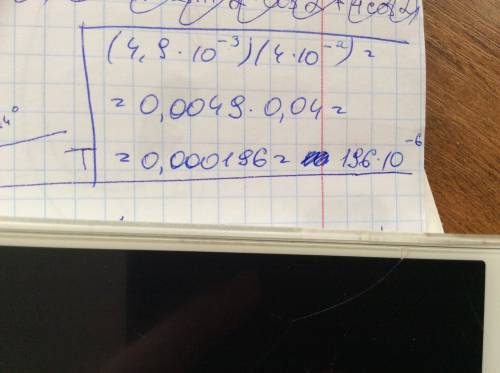 (4,9 · 10⁻³)(4 · 10⁻²) =
= 0,0049 · 0,04 =
= 0,000196 = 196 · 10⁻⁶